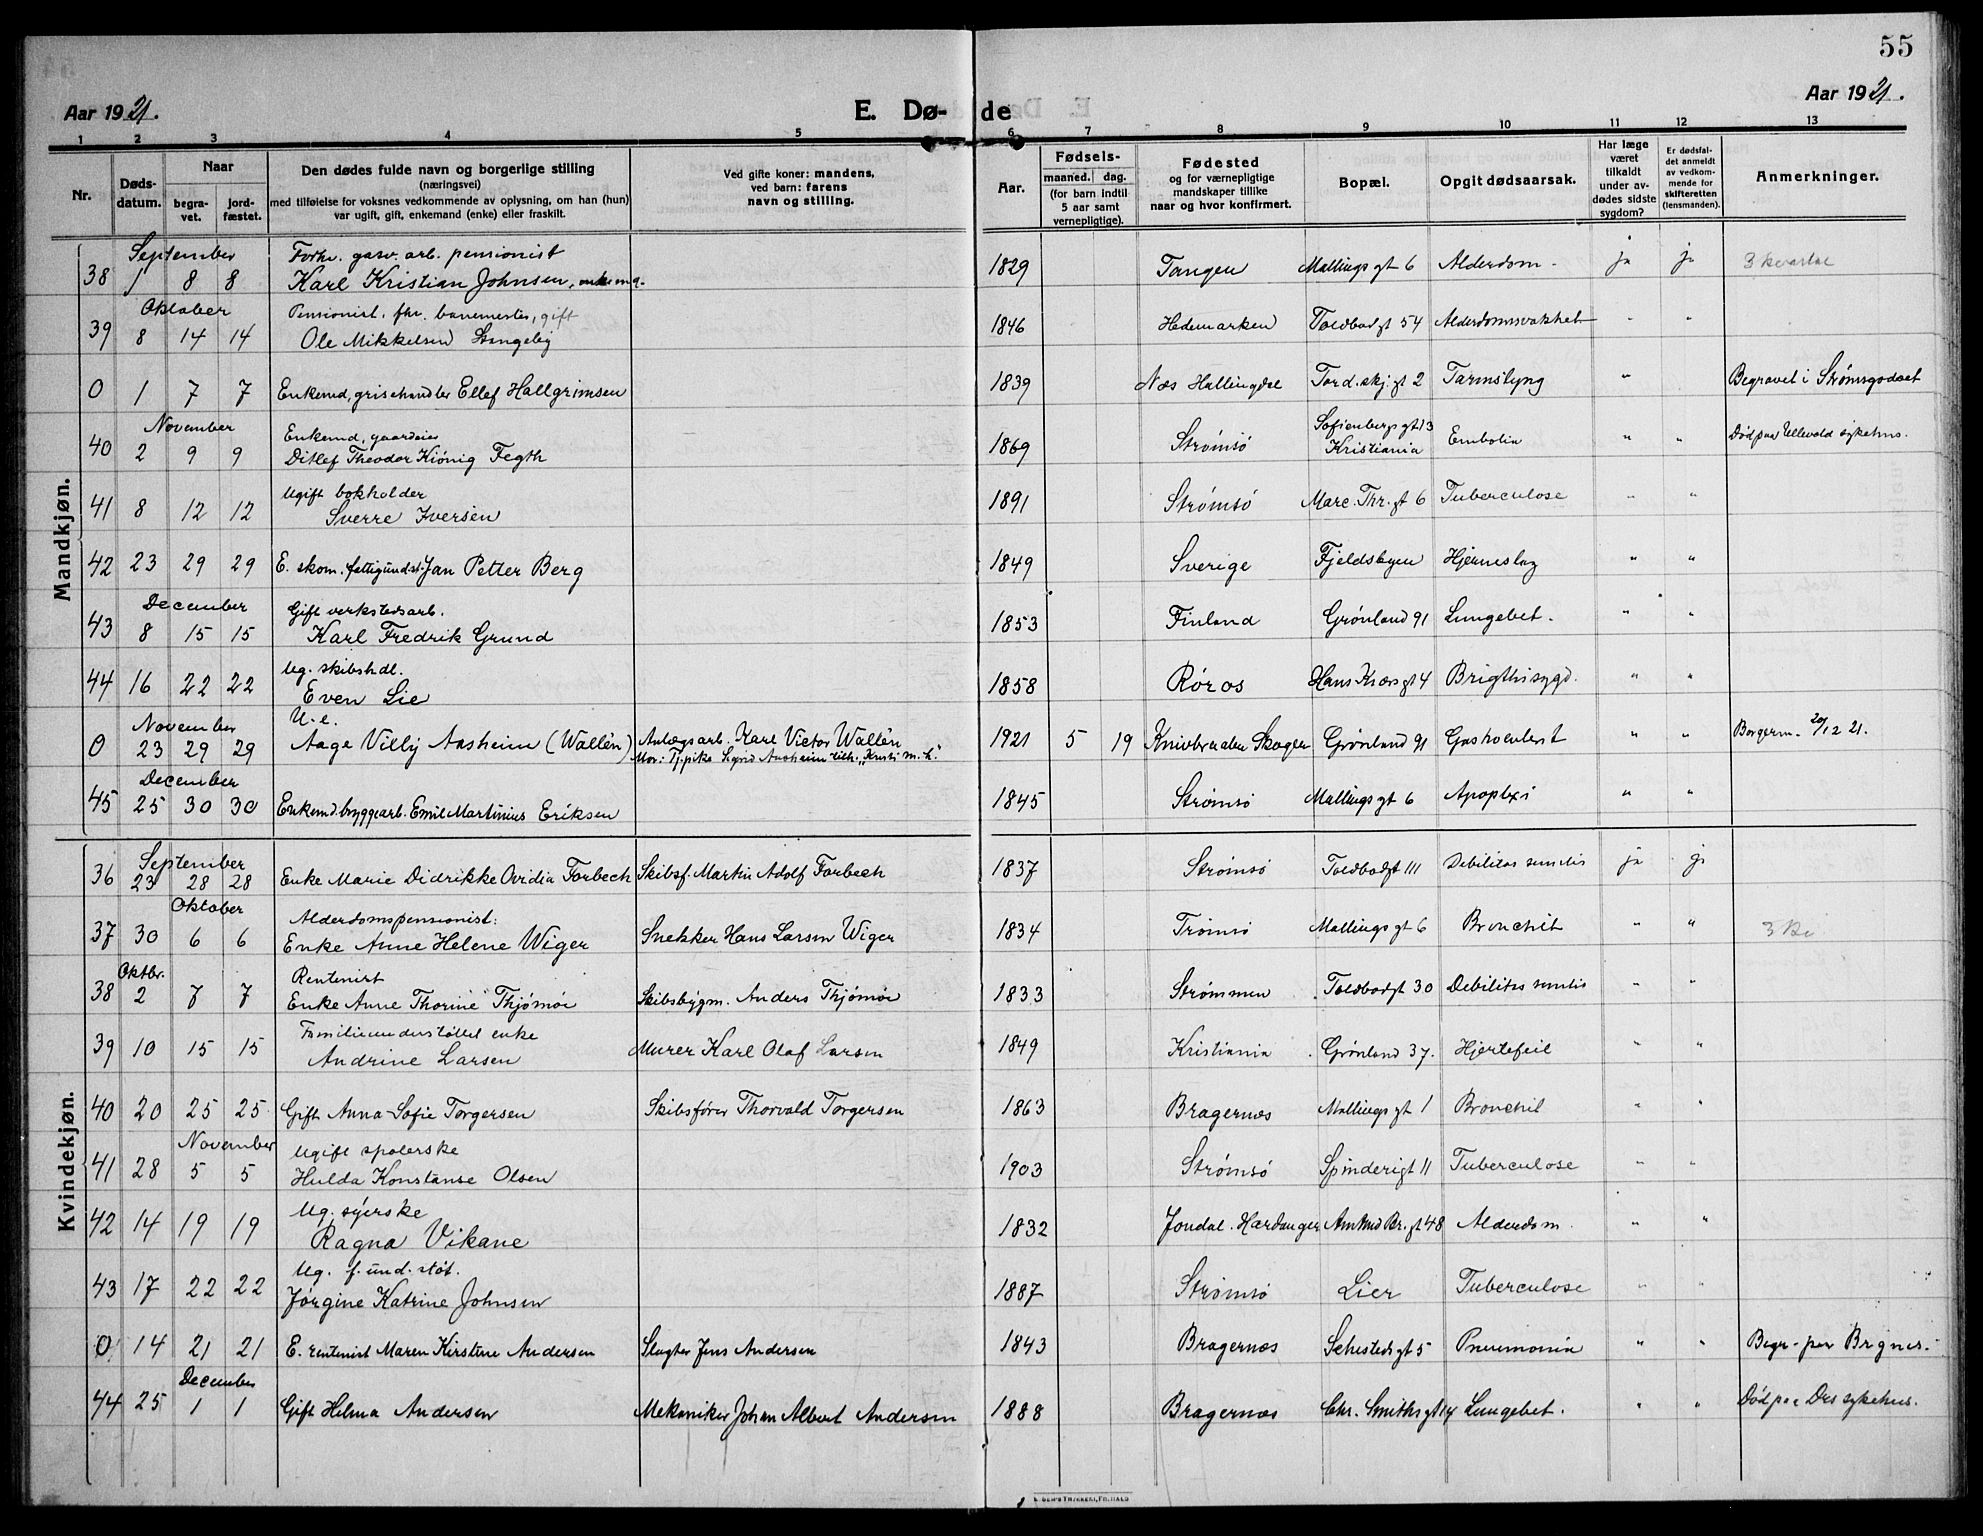 55
Aar 1921.
E. Dø- de
Aar 1921.
1 2 3 4 5 6 7 8 9 10 11 12 13
Nr.
Døds-
datum.
Naar
begra-
vet.
jord-
fæstet.
Den dødes fulde navn og borgerlige stilling
(næringsvei)
med tilføielse for voksnes vedkommende av oplysning, om han (hun)
var ugift, gift, enkemand (enke) eller fraskilt.
Ved gifte koner: mandens,
ved barn: farens
navn og stilling.
Aar.
Fødsels-
maaned. dag.
(for barn indtil
5 aar samt
vernepligtige).
Fødested
og for værnepligtige
mandskaper tillike
naar og hvor konfirmert.
Bopæl.
Opgit dødsaarsak.
Har læge
været
tilkaldt
under av-
dødes sidste
sygdom?
Er dødsfal-
det anmeldt
av vedkom-
mende for
skifteretten
(lensmanden).
Anmerkninger.
Mandkjøn.
September Forhv. gasv. arb. pensionist
38 1 8 8 Karl Kristian Johnsen, enkemd. 1829 Tangen Mallings gt 6 Alderdom. ja ja 3 kvartal
Oktober Pensionist, fhv. banemester, gift
39 8 14 14 Ole Mikkelsen 1846 Hedemarken Toldbodgt 54 Alderdomssvakhet " "
0 1 7 7 Enkemd, grisehandler Ellef Hallgrimsen 1839 Næs Hallingdal Tord.skj.gt 2 Tarmslyng " Begravet i Strømsgodset
November Enkemd, gaardeier Sofienbergsgt 13
40 2 9 9 Ditlef Theodor Kiönig Fegth 1869 Strømsø Kristiania Emboli " " Død paa Ullevold sykehus.
Ugift bokholder
41 8 12 12 Sverre Iversen 1891 Strømsø Marc. Thr. gt 6 Tuberculose " "
42 23 29 29 E. skom. fattigundst. Jan Petter Berg 1849 Sverige Fjeldsbyen Hjerneslag " "
December Gift verkstedsarb.
43 8 15 15 Karl Fredrik Grund 1853 Finland Grønland 91 Lungebet. " "
Ug. skibshdl.
44 16 22 22 Even Lie 1858 Røros Hans Kiærs gt 4 Brigthisygd. " "
November U. e.
0 23 29 29 Aage Villy Aasheim (Wallén) Anlægsarb. Karl Victor Wallén 1921 5 19 Knivbruddene Skoger Grønland 91 " " Borgerm. 20/12 21.
Mor: Tj.pike Sigrid Aasheim
December
45 25 30 30 Enkemd. bryggearb. Emil Martinius Eriksen 1845 Strømsø Mallings gt 6 Apoplexi " "
Kvindekjøn.
September
36 23 28 28 Enke Marie Didrikke Ovidia Forbech Skibsf. Martin Adolf Forbech 1837 Strømsø Toldbodgt 111 Debilitas senilis ja ja
Oktober Alderdomspensionist:
37 30 6 6 Enke Anne Helene Wiger Snekker Hans Larsen Wiger 1834 Trømsø Mallings gt 6 Bronchit " "
Oktbr. Rentenist
38 2 7 7 Enke Anne Thorine Thjømøe Skibsbygm. Anders Thjømøe 1833 Strømmen Toldbodgt 30 Debilitas senilis " "
Familieunderstøttet enke
39 10 15 15 Andrine Larsen Murer Karl Olaf Larsen 1849 Kristiania Grønland 37. Hjertefeil " "
40 20 25 25 Gift Anna-Sofie Torgersen Skibsfører Thorvald Torgersen 1863 Bragernæs Mallings gt 1 Bronchit " "
November Ugift spolerske
41 28 5 5 Hulda Konstanse Olsen 1903 Strømsø Spinderigt 11 Tuberculose " "
Ug. syerske
42 14 19 19 Ragna Vikane 1832 Jondal. Hardanger Amtmd Br. gt 48 Alderdom. " "
Ug. f. und. støt.
43 17 22 22 Jørgine Katrine Johnsen 1887 Strømsø Lier Tuberculose " "
0 14 21 21 E. rentenist Maren Kirstine Andersen Slagter Jens Andersen 1843 Bragernæs Schestedsgt 5 Pneumonia " " Begr. paa Brgnes.
December
44 25 1 1 Gift Helma Andersen Mekaniker Johan Albert Andersen 1888 Bragernæs Chr. Smiths gt 14 Lungebet. " " Død paa Drs sykehus.